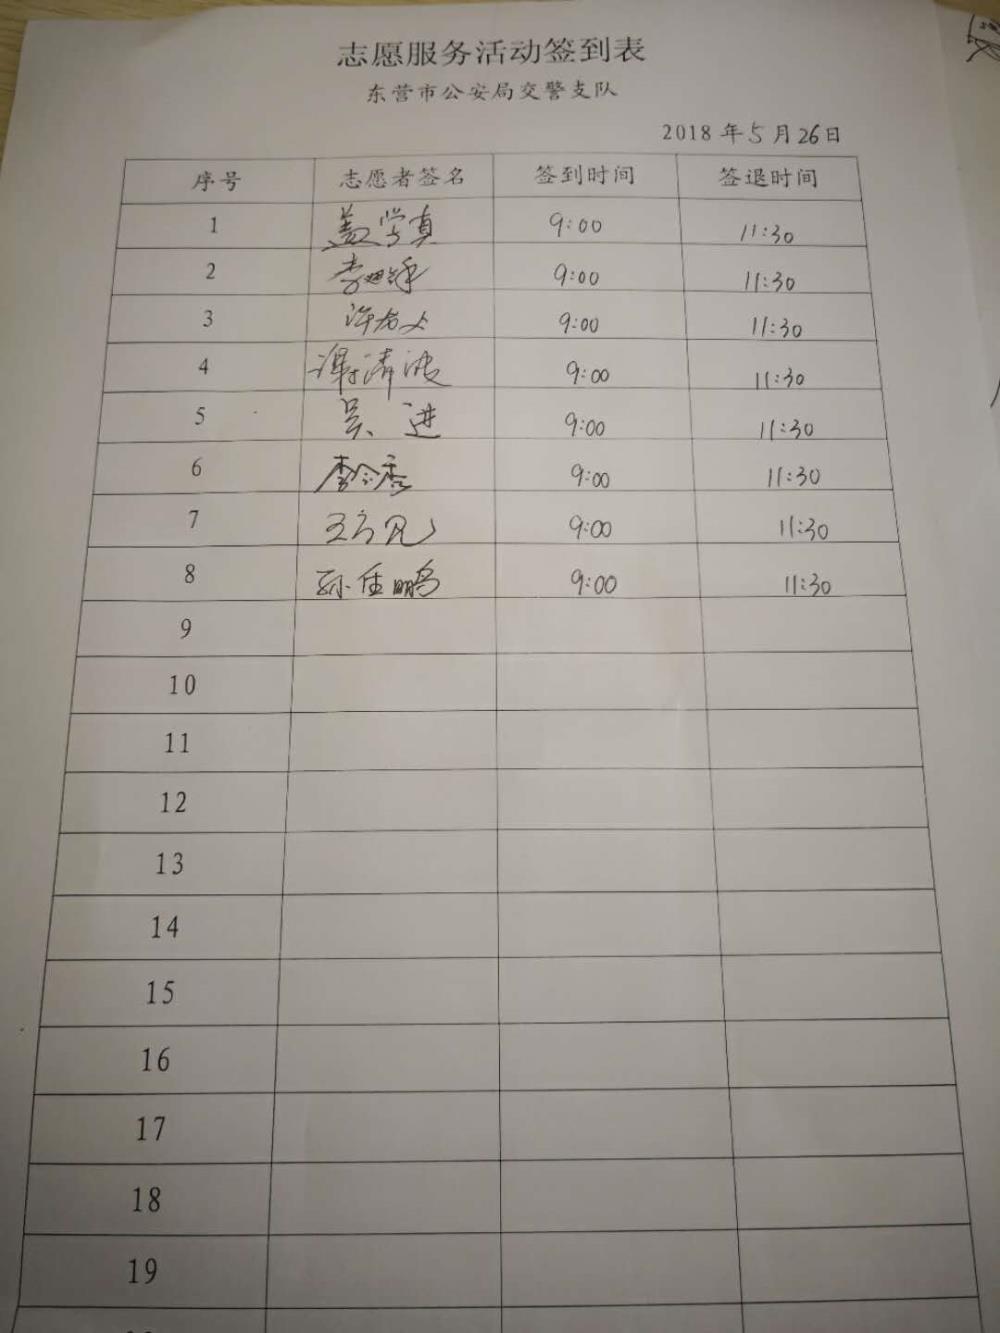 志愿服务活动签到表
东营市公安局交警支队
2018 年 5 月 26 日
序号 志愿者签名 签到时间 签退时间
1 盖学真 9:00 11:30
2 李 9:00 11:30
3 许 9:00 11:30
4 谭清波 9:00 11:30
5 吴进 9:00 11:30
6 李令香 9:00 11:30
7 王方凡 9:00 11:30
8 孙佳鹏 9:00 11:30
9
10
11
12
13
14
15
16
17
18
19